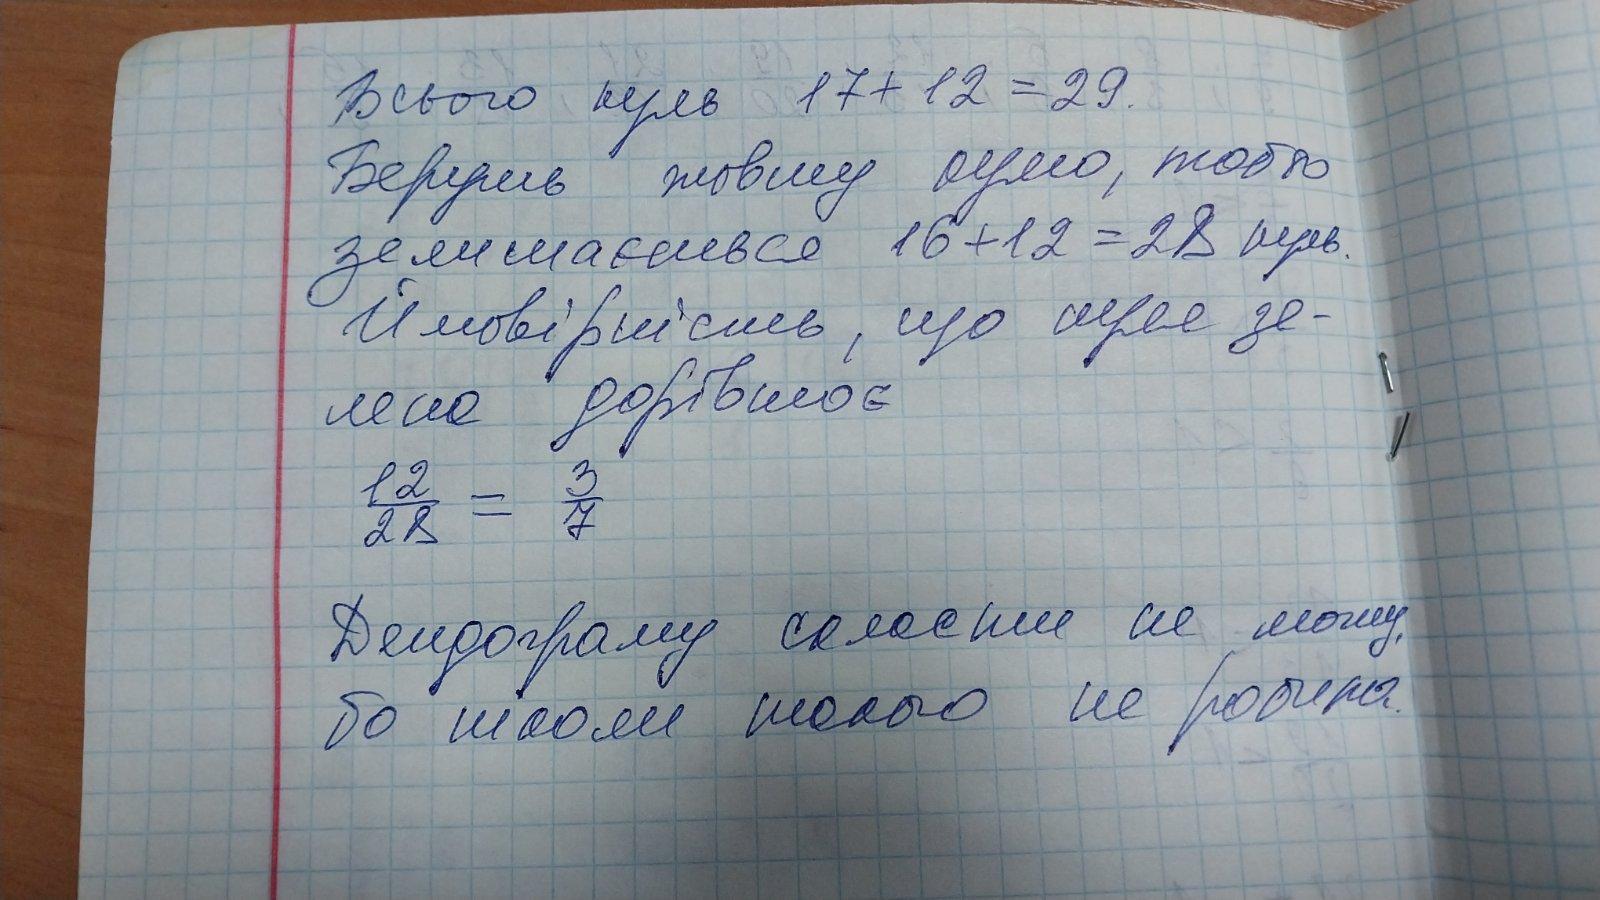 Всього куль 17+12=29.
Беруть жовту кулю, тобто
залишається 16+12=28 куль.
Ймовірність, що куля зе-
лена дорівнює
12/28 = 3/7
Дендограму скласти не можу,
бо ніколи такого не робила.